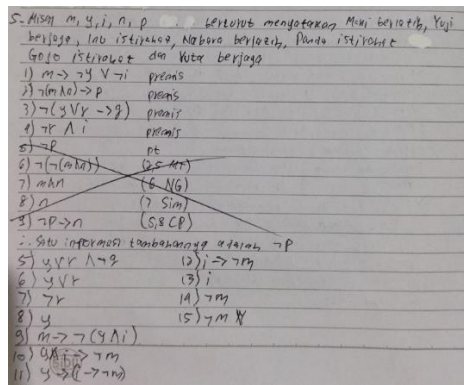 5. Misal m, y, i, n, p ... berturut menyatakan Maki berlatih, Yuji
berjaga, Inu istirahat, Nobara berlatih, Panda istirahat
Gojo istirahat dan Yuta berjaga
1) m -> ¬y ∨ ¬i premis
2) ¬(m∧n) -> p premis
3) ¬(y∨r -> g) premis
4) ¬r ∧ i premis
5) ¬p pt
6) ¬(¬(m∧n)) (2,5 MT)
7) m∧n (6 NG)
8) n (7 Sim)
9) ¬p -> n (5,8 CP)
∴ Satu informasi tambahannya adalah ¬p
5) y∨r ∧ ¬g
6) y∨r
7) ¬r
8) y
9) m -> ¬(y∧i)
10) y∧i -> ¬m
11) y -> (i -> ¬m)
12) i -> ¬m
13) i
14) ¬m
15) ¬m ∨